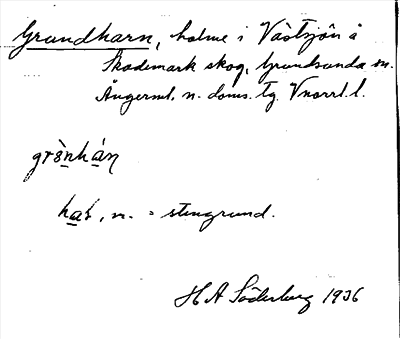 Grundharn, holme i Västsjön å
Skademark skog, Grundsunda sn.
Ångerml. n. doms. tg. Vnorrl. l.
grènhán
har, n. = stengrund.
H A Söderberg 1936